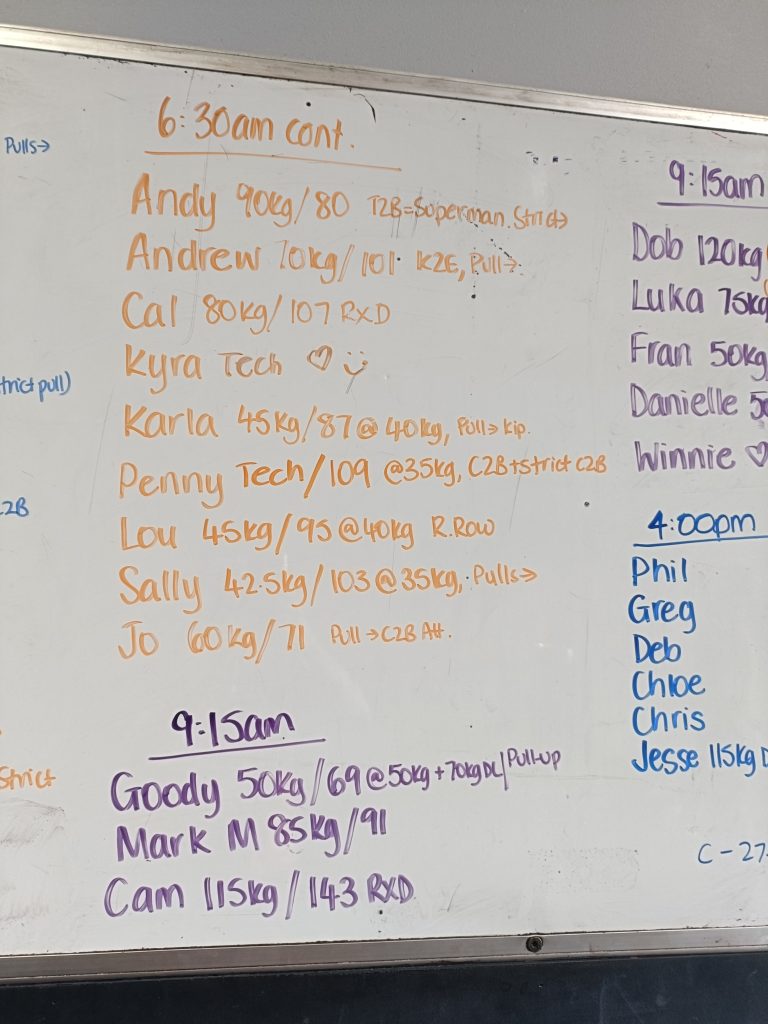 Pulls→
trict pull)
2B
Strict
6:30am cont.
Andy 90kg/80 T2B=Superman.Strict→
Andrew 70kg/101 K2E, Pull→
Cal 80kg/107 RXD
Kyra Tech ♡ ü
Karla 45kg/87@40kg, Pull→kip.
Penny Tech/109 @35kg, C2B+strict C2B
Lou 45kg/95@40kg R.Row
Sally 42.5kg/103@35kg, Pulls→
Jo 60kg/71 Pull→C2B Att.
9:15am
Goody 50kg/69@50kg+70kgDL/Pull-up
Mark M 85kg/91
Cam 115kg/143 RXD
9:15am
Dob 120kg
Luka 75kg
Fran 50kg
Danielle 50
Winnie ♡
4:00pm
Phil
Greg
Deb
Chloe
Chris
Jesse 115kg D
C-27